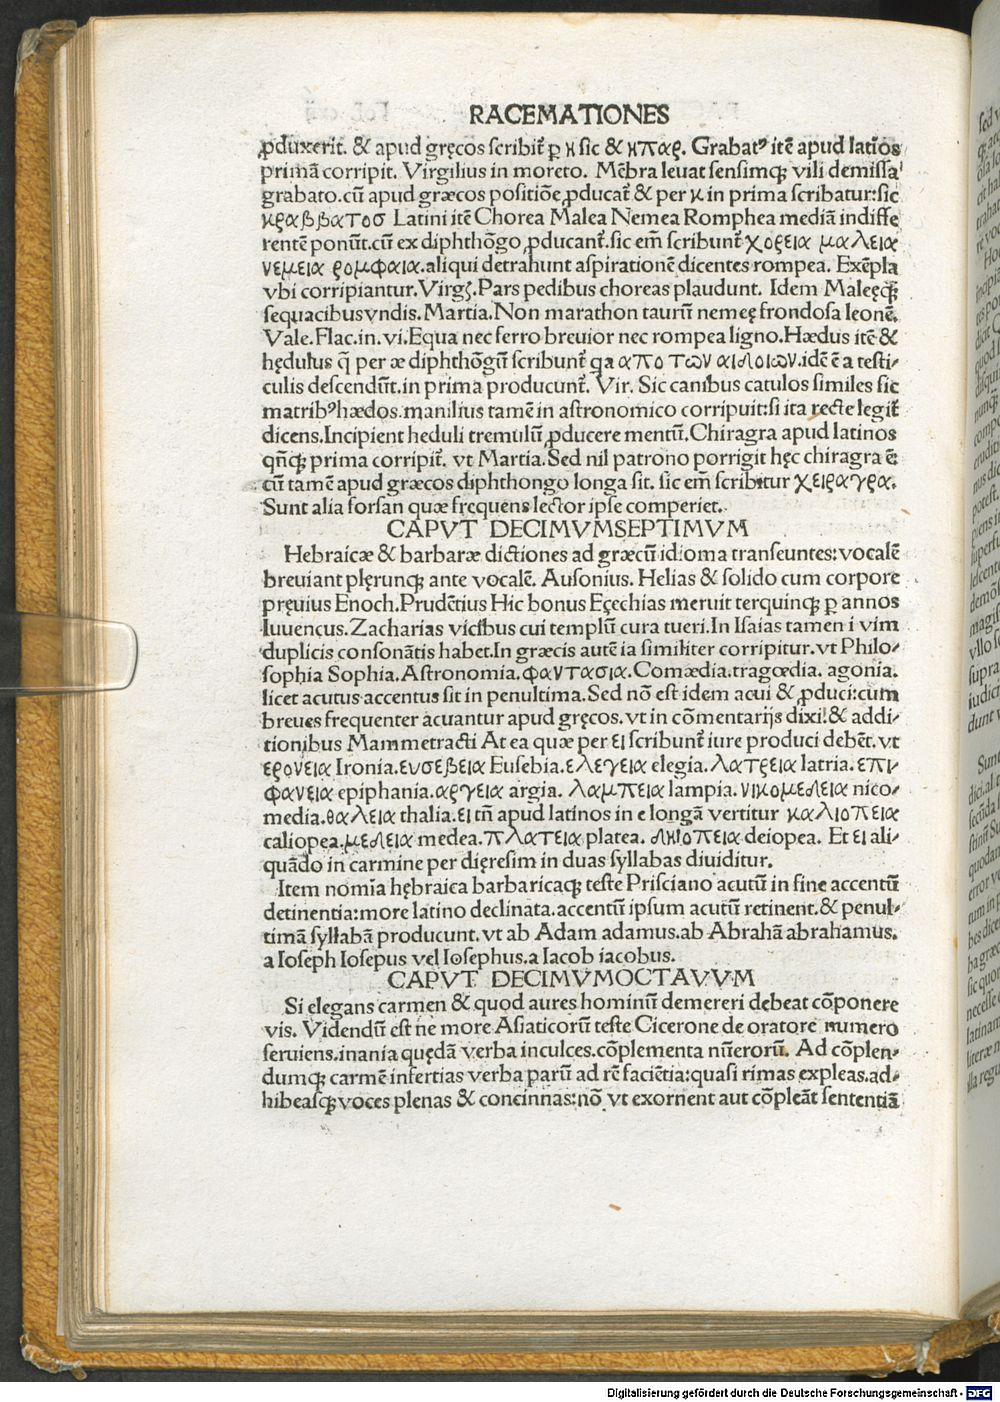 RACEMATIONES
ꝓduxerit. & apud gręcos scribit̃ ꝑ ϰ sic & ϰπαρ. Grabatꝰ itẽ apud latĩos
primã corripit. Virgilius in moreto. Mẽbra leuat sensimqꝫ vili demissa
grabato.cũ apud græcos positiõe ꝓducat̃ & per ϰ in prima scribatur:sic
κραββατοσ Latini itẽ Chorea Malea Nemea Romphea mediã indiffe
rentẽ ponũt.cũ ex diphthõgo ꝓducant̃.sic em̃ scribunt̃ χορεια μαλεια
νεμεια ρομφαια.aliqui detrahunt aspirationẽ dicentes rompea. Exẽpla
vbi corripiantur.Virgꝫ.Pars pedibus choreas plaudunt. Idem Maleęqꝫ
sequacibusvndis.Martia.Non marathon taurũ nemeę frondosa leonẽ.
Vale.Flac.in.vi.Equa nec ferro breuior nec rompea ligno.Hædus itẽ &
hędulus q̃ per æ diphthõgũ scribunt̃ qa απο των αιδοιων.idẽ ẽ a testi-
culis descendũt.in prima producunt̃. Vir. Sic canibus catulos similes sic
matribꝰhædos.manilius tamẽ in astronomico corripuit:si ita recte legit̃
dicens.Incipient heduli tremulũ ꝓducere mentũ.Chiragra apud latinos
qñqꝫ prima corripit̃. vt Martia.Sed nil patrono porrigit hęc chiragra ẽ:
cũ tamẽ apud græcos diphthongo longa sit. sic em̃ scribitur χειραγρα.
Sunt alia forsan quæ frequens lector ipse comperiet.
CAPVT DECIMVMSEPTIMVM
Hebraicæ & barbaræ dictiones ad græcũ idioma transeuntes:vocalẽ
breuiant plęrunqꝫ ante vocalẽ. Ausonius. Helias & solido cum corpore
pręuius Enoch.Prudẽtius Hic bonus Eęechias meruit terquinqꝫ ꝑ annos
Iuuencus.Zacharias vicibus cui templũ cura tueri.In Isaias tamen i vim
duplicis consonãtis habet.In græcis autẽ ia similiter corripitur.vt Philo-
sophia Sophia.Astronomia.φαντασια.Comædia.tragœdia. agonia.
licet acutus accentus sit in penultima.Sed nõ est idem acui & ꝓduci:cum
breues frequenter acuantur apud gręcos.vt in cõmentarijs dixi:& addi-
tionibus Mammetracti At ea quæ per ει scribunt̃ iure produci debẽt.vt
ερονεια Ironia.ευσεβεια Eusebia.ελεγεια elegia.λατρεια latria.επι
φανεια epiphania.αργεια argia. λαμπεια lampia.νικομεδεια nico-
media.θαλεια thalia.ει tñ apud latinos in e longã vertitur καλιοπεια
caliopea.μεδεια medea.πλατεια platea. δηιοπεια deiopea. Et ει ali-
quãdo in carmine per dięresim in duas syllabas diuiditur.
Item nomĩa hębraica barbaricaqꝫ teste Prisciano acutũ in fine accentũ
detinentia:more latino declinata.accentũ ipsum acutũ retinent.& penul-
timã syllabã producunt.vt ab Adam adamus.ab Abrahã abrahamus.
a Ioseph Iosepus vel Iosephus.a Iacob iacobus.
CAPVT DECIMVMOCTAVVM
Si elegans carmen & quod aures hominũ demereri debeat cõponere
vis. Videndũ est ne more Asiaticorũ teste Cicerone de oratore numero
seruiens.inania quędã verba inculces.cõplementa nũerorũ. Ad cõplen-
dumqꝫ carmẽ insertias verba parũ ad rẽ faciẽtia:quasi rimas expleas.ad-
hibeasqꝫ voces plenas & concinnas:nõ vt exornent aut cõpleãt sententiã
Digitalisierung gefördert durch die Deutsche Forschungsgemeinschaft - DFG